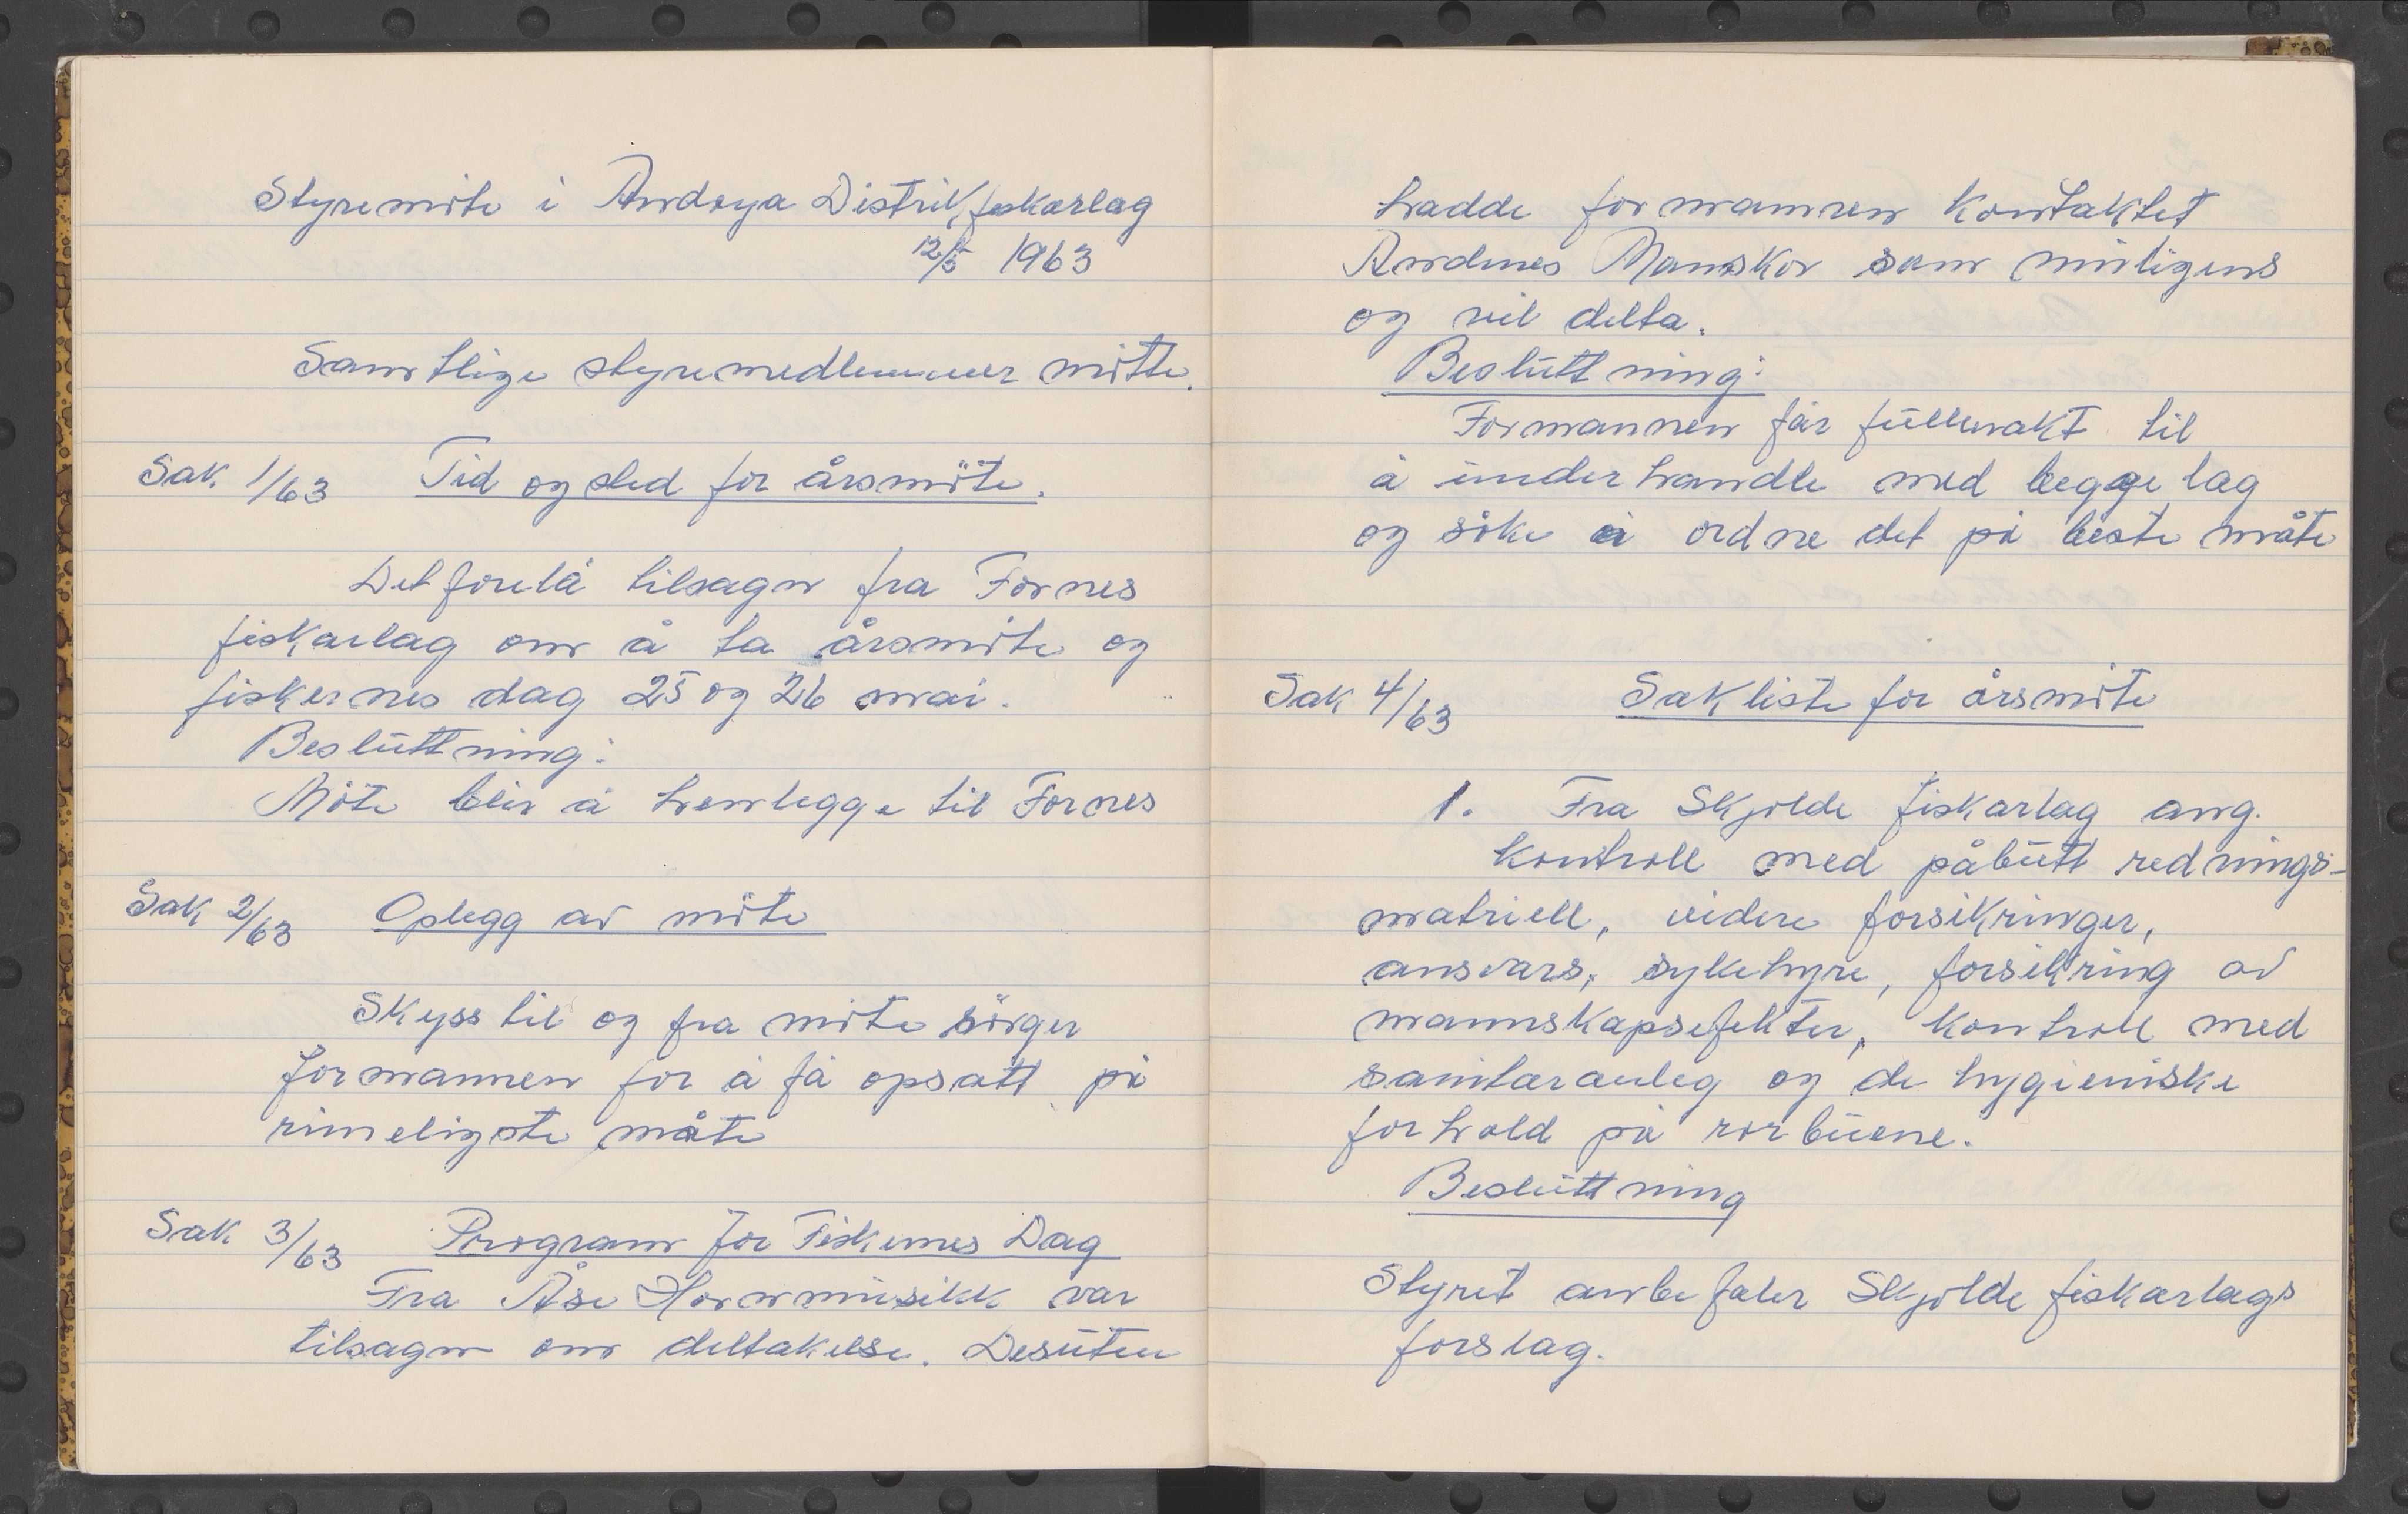 Styremöte i Andøya Distriktfiskarlag
12/5 1963
Samtlige styremedlemmer mötte.
Sak 1/63 Tid og sted for årsmöte.
Det forelå tilsagn fra Fornes
fiskarlag om å ta årsmöte og
fiskernes dag 25 og 26 mai.
Besluttning:
Möte blir å henlegge til Fornes
Sak 2/63 Oplegg av möte
Skyss til og fra möte sörger
formannen for å få opsatt på
rimeligste måte
Sak 3/63 Program for Fiskernes Dag
Fra Åse Hornmusikk var
tilsagn om deltakelse. Desuten
hadde formannen kontaktet
Andenes Manskor som muligens
og vil delta.
Besluttning:
Formannen får fullmakt til
å underhandle med begge lag
og söke å ordne det på beste måte
Sak 4/63 Sakliste for årsmöte
1. Fra Skjolde fiskarlag ang.
kontroll med påbutt rednings-
matriell, videre forsikringer,
ansvars, sykehyre, forsikring av
mannskapsefekter, kontroll med
sanitæranleg og de hygieniske
forhold på rorbuene.
Besluttning
Styret anbefaler Skjolde fiskarlags
forslag.